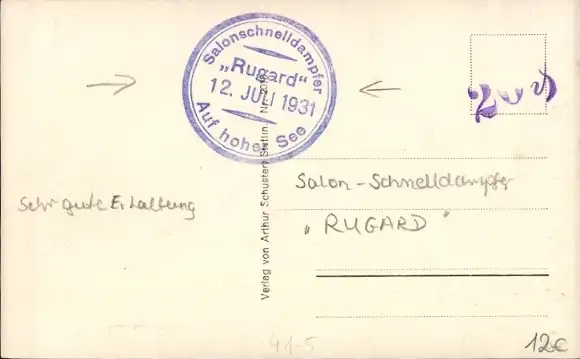 Salonschnelldampfer
„Rugard“
12. JULI 1931
Auf hoher See
Sehr gute Erhaltung
Verlag von Arthur Schuster, Stettin
Salon-Schnelldampfer
"RUGARD"
41.5
12€